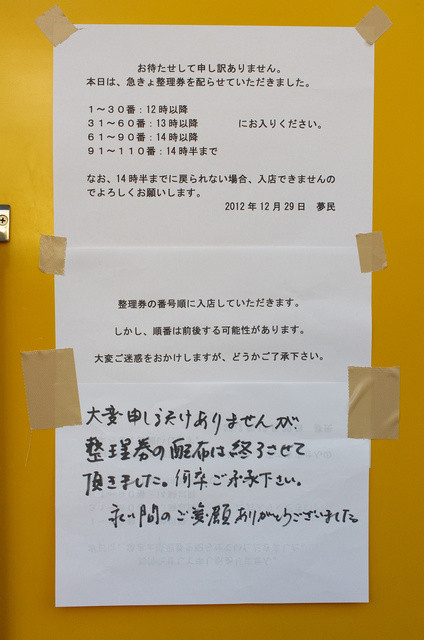 お待たせして申し訳ありません。
本日は、急きょ整理券を配らせていただきました。
1～30番：12時以降
31～60番：13時以降　にお入りください。
61～90番：14時以降
91～110番：14時半まで
なお、14時半までに戻られない場合、入店できませんの
でよろしくお願いします。
2012年12月29日　夢民
整理券の番号順に入店していただきます。
しかし、順番は前後する可能性があります。
大変ご迷惑をおかけしますが、どうかご了承下さい。
大変申しわけありませんが
整理券の配布は終了させて
頂きました。何卒ご了承下さい。
永い間のご愛顧ありがとうございました